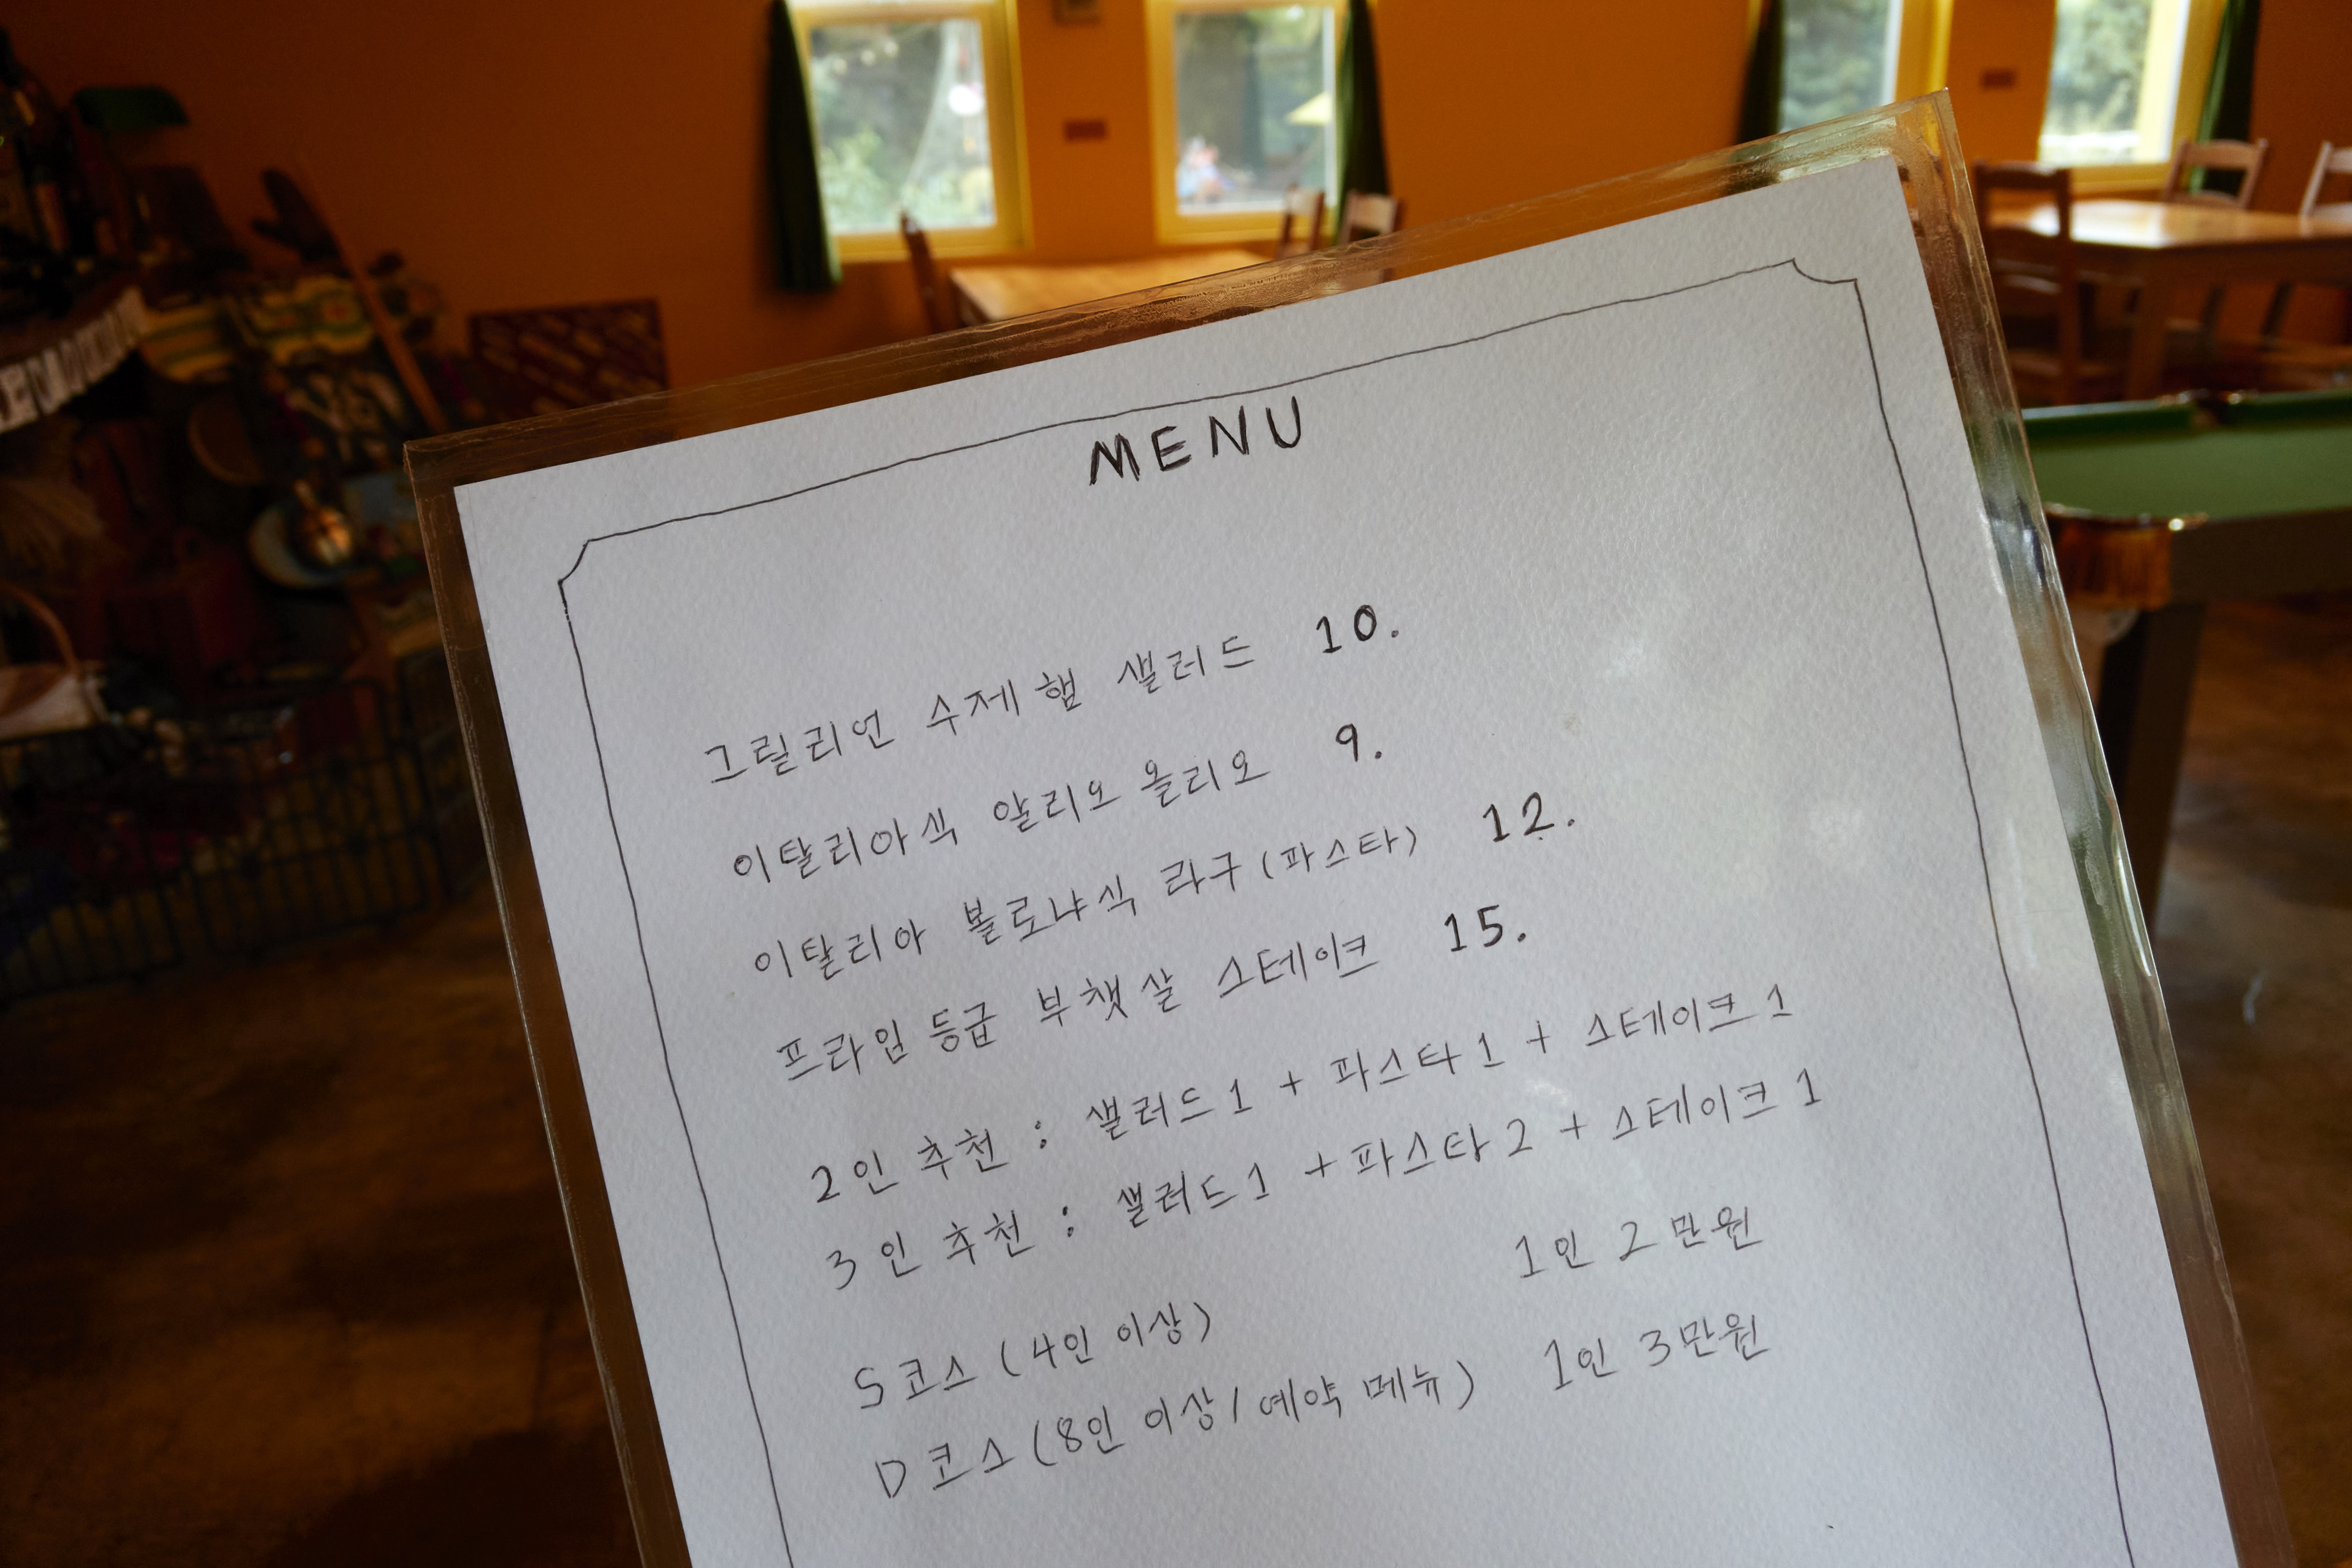 MENU
그릴리언 수제햄 샐러드 10.
이탈리아식 알리오올리오 9.
이탈리아 볼로냐식 라구(파스타) 12.
프라임등급 부챗살 스테이크 15.
2인 추천 : 샐러드1 + 파스타1 + 스테이크1
3인 추천 : 샐러드1 + 파스타2 + 스테이크1
S코스 (4인 이상) 1인 2만원
D코스 (8인 이상/예약 메뉴) 1인 3만원